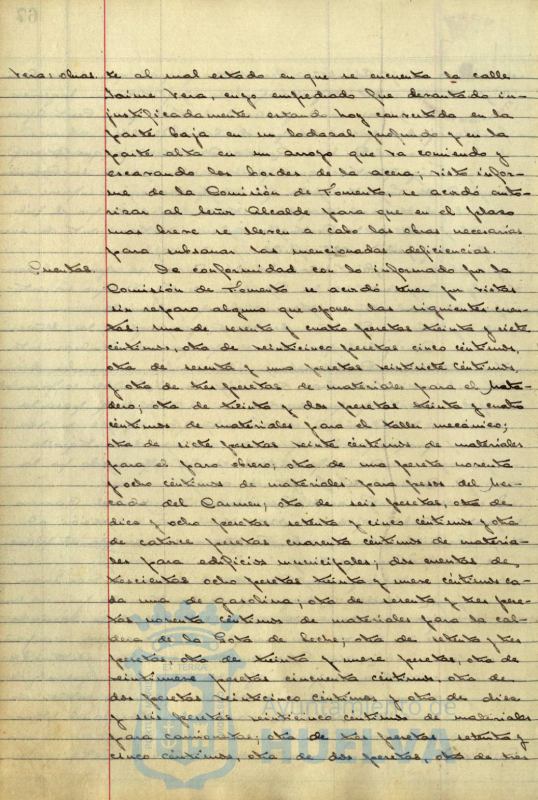 67
Vera: obras. te al mal estado en que se encuentra la calle
Jaime Vera, cuyo empedrado fue levantado in-
justificadamente estando hoy convertida en la
parte baja en un lodazal profundo y en la
parte alta en un arroyo que va comiendo y
escarvando los bordes de la acera; visto infor-
me de la Comisión de Fomento, se acordó auto-
rizar al Señor Alcalde para que en el plazo
mas breve se lleven a cabo las obras necesarias
para subsanar las mencionadas deficiencias.
Cuentas. De conformidad con lo informado por la
Comisión de Fomento se acordó tener por vistas
sin reparo alguno que oponer las siguientes cuen-
tas: una de sesenta y cuatro pesetas treinta y siete
céntimos, otra de veinticinco pesetas cinco céntimos,
otra de sesenta y una pesetas veintisiete céntimos
y otra de tres pesetas de materiales para el Mata-
dero; otra de treinta y dos pesetas treinta y cuatro
céntimos de materiales para el taller mecánico;
otra de siete pesetas veinte céntimos de materiales
para el paro obrero; otra de una peseta noventa
y ocho céntimos de materiales para pesos del Mer-
cado del Carmen; otra de seis pesetas, otra de
diez y ocho pesetas setenta y cinco céntimos y otra
de catorce pesetas cuarenta céntimos de materia-
les para edificios municipales; dos cuentas de
trescientas ocho pesetas treinta y nueve céntimos ca-
da una de gasolina; otra de sesenta y tres pese-
tas noventa céntimos de materiales para la cal-
dera de la Gota de Leche; otra de setenta y tres
pesetas, otra de treinta y nueve pesetas, otra de
veintinueve pesetas cincuenta céntimos, otra de
dos pesetas veinticinco céntimos y otra de diez
y seis pesetas veinticinco céntimos de materiales
para camionetas; otra de tres pesetas setenta y
cinco céntimos, otra de dos pesetas, otra de tres
Ayuntamiento de
HUELVA